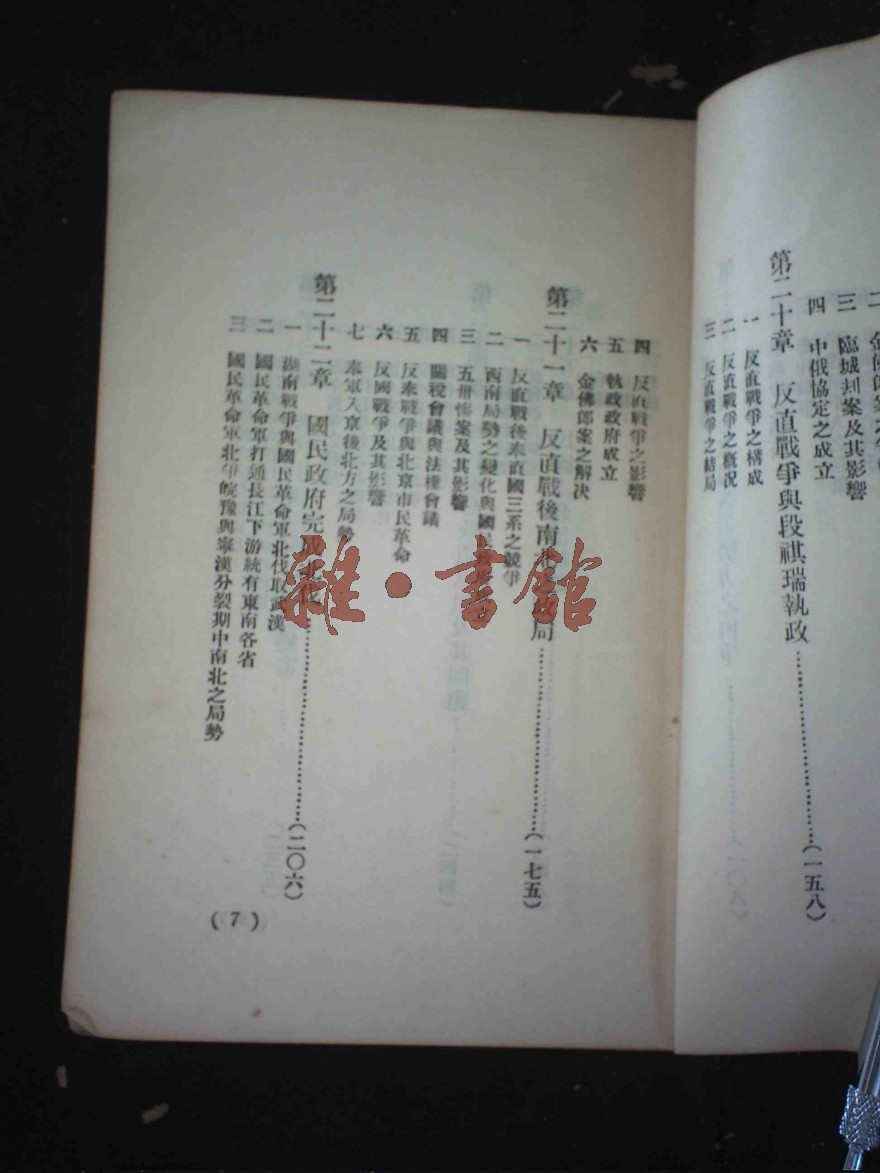 三 臨城刦案及其影響
四 中俄協定之成立
第二十章 反直戰爭與段祺瑞執政……(一五八)
一 反直戰爭之構成
二 反直戰爭之概況
三 反直戰爭之結局
四 反直戰爭之影響
五 執政政府成立
六 金佛郎案之解決
第二十一章 反直戰後南北 局……(一七五)
一 反直戰後奉直國三系之競爭
二 西南局勢之變化與國民
三 五卅慘案及其影響
四 關稅會議與法權會議
五 反奉戰爭與北京市民革命
六 反國戰爭及其影響
七 奉軍入京後北方之局勢
第二十二章 國民政府完成北伐……(二〇六)
一 湖南戰爭與國民革命軍北伐取武漢
二 國民革命軍打通長江下游統有東南各省
三 國民革命軍北爭皖豫與寧漢分裂期中南北之局勢
(7)
雜·書館